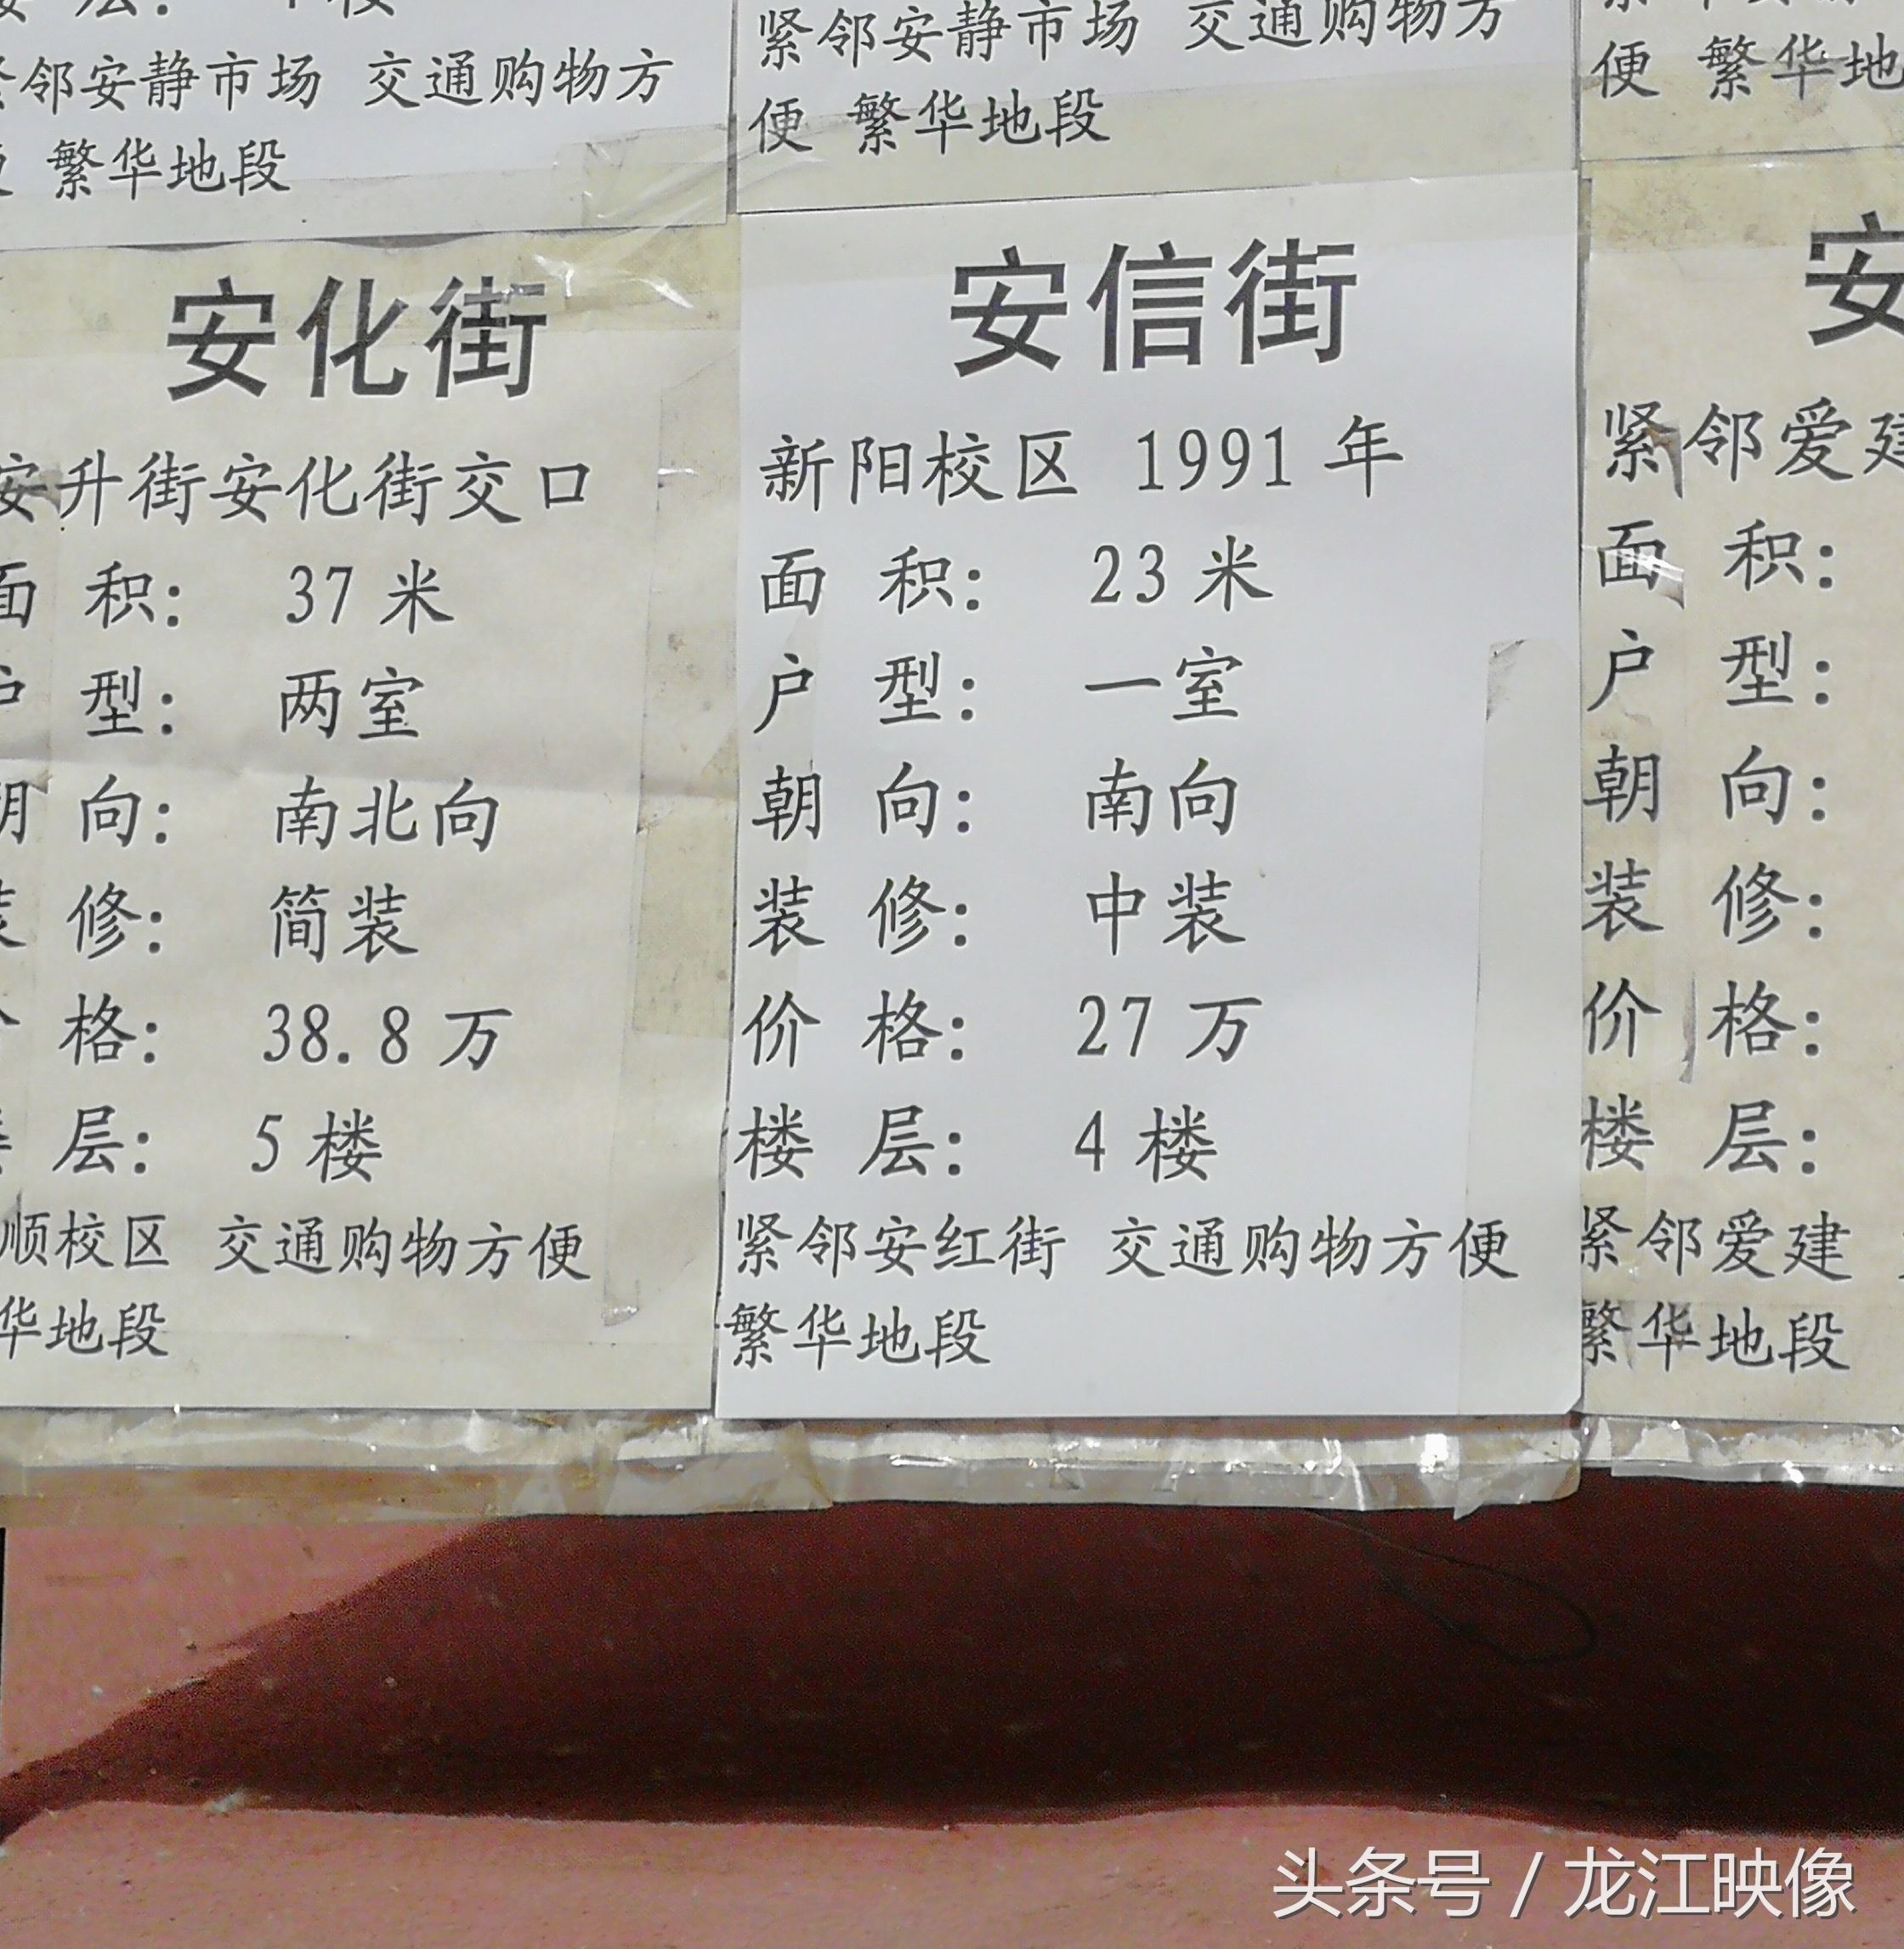 邻安静市场 交通购物方
繁华地段
紧邻安静市场 交通购物方
便 繁华地段
便 繁华地
安化街
安升街安化街交口
面 积: 37 米
户 型: 两室
朝 向: 南北向
装 修: 简装
价 格: 38.8 万
层: 5 楼
顺校区 交通购物方便
华地段
安信街
新阳校区 1991 年
面 积: 23 米
户 型: 一室
朝 向: 南向
装 修: 中装
价 格: 27 万
楼 层: 4 楼
紧邻安红街 交通购物方便
繁华地段
安
紧邻爱建
面 积:
户 型:
朝 向:
装 修:
价 格:
楼 层:
紧邻爱建
繁华地段
头条号 / 龙江映像